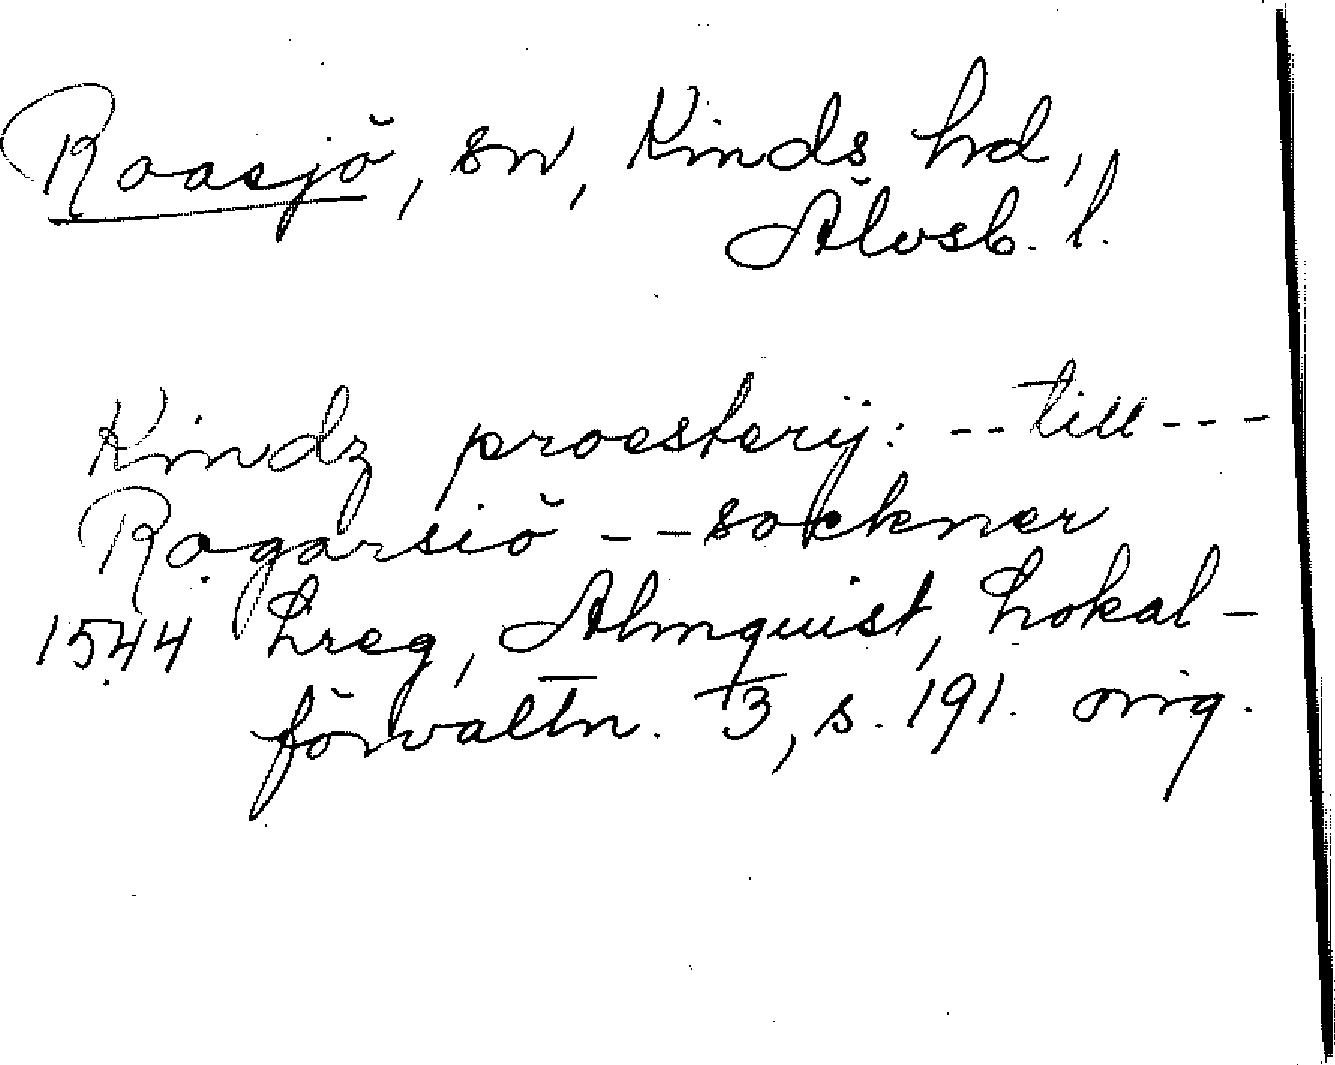 Roasjö, sn, Kinds hd,
Älvsb. l.
Kindz proesterij: -- till ---
Rogarsiö -- sockner
1544 Lreg, Almquist, Lokal-
förvaltn. 3, s. 191. orig.